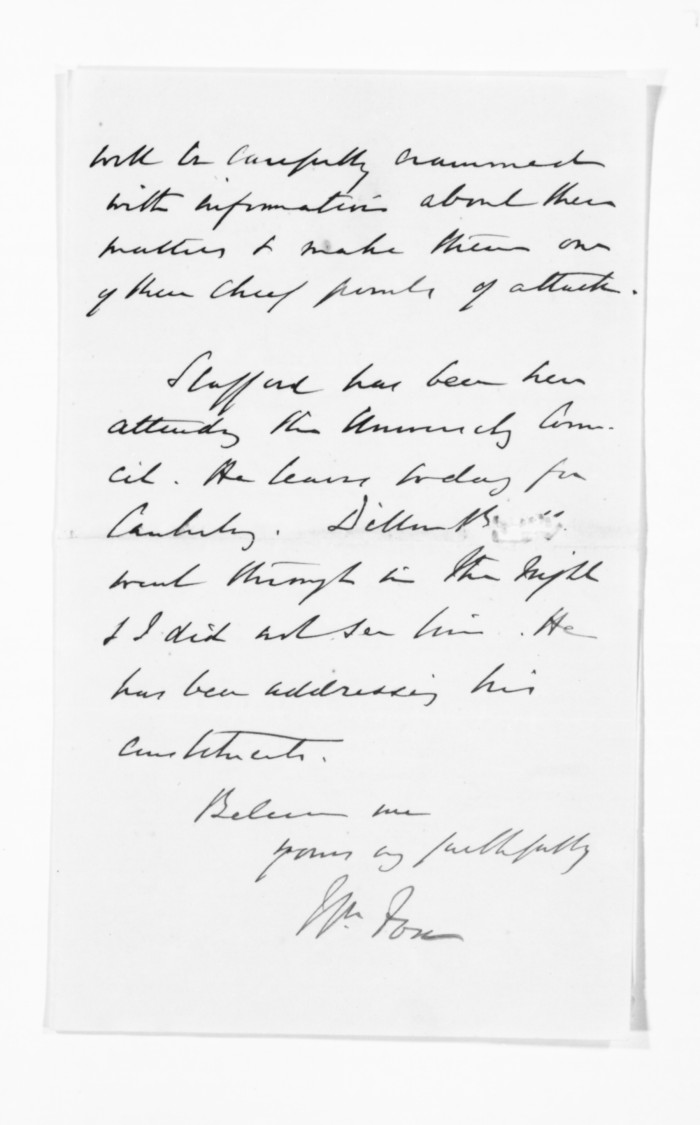 will be carefully crammed
with information about these
matters & make them one
of their chief points of attack.
Stafford has been here
attending the University Coun-
cil. He leaves today for
Canterbury. Dillon B
went through in the night
& I did not see him. He
has been addressing his
constituents.
Believe me
yours very faithfully
Wm. Fox